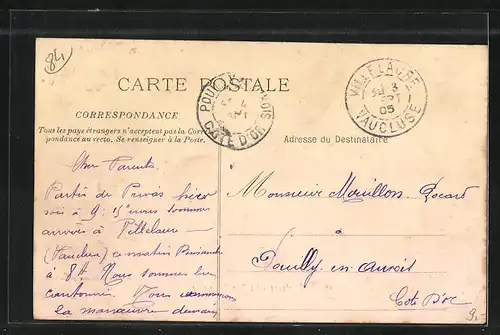 84
CARTE POSTALE
CORRESPONDANCE
Tous les pays étrangers n'acceptent pas la Corres-
pondance au recto. Se renseigner à la Poste.
VILLELAURE
3
SEPT
05
VAUCLUSE
4
SEPT
CÔTE D'OR
Adresse du Destinataire
Cher Parents
Partis de Privas hier
soir à 9h 15 nous sommes
arrivés à Villelaure
(Vaucluse) ce matin
à 8h. Nous sommes
cantonnés. Nous
la manœuvre demain
Monsieur Mouillon
à
Pouilly en Auxois
Cote D'or
9.-